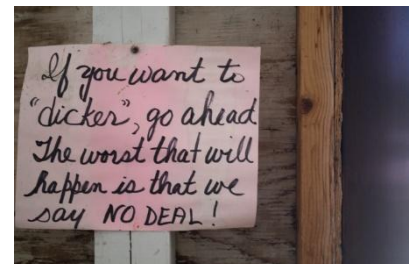 If you want to
"dicker", go ahead
The worst that will
happen is that we
say NO DEAL!